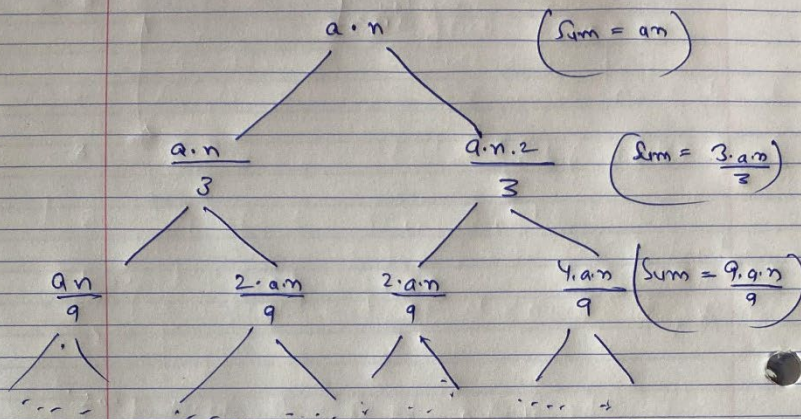 a·n (Sum = an)
a·n/3 a.n.2/3 (Sum = 3·a·n/3)
an/9 2·a·n/9 2·a·n/9 4·a·n/9 (Sum = 9·a·n/9)